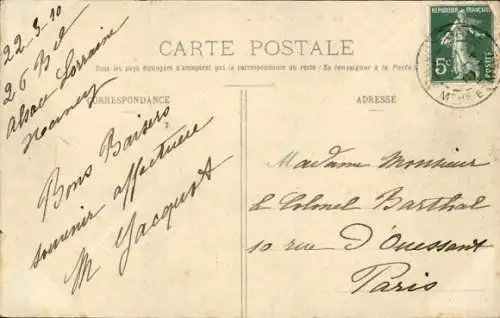 CARTE POSTALE
Tous les pays étrangers n'acceptent pas la correspondance au recto (Se renseigner à la Poste)
CORRESPONDANCE
ADRESSE
RÉPUBLIQUE FRANÇAISE
5c
POSTES
22-3-10
26 Bd
Alsace Lorraine
Nancy
Bons Baisers
souvenir affectueux
M Jacquot
Madame Monsieur
le Colonel Barthal
10 rue D'Ouessant
Paris